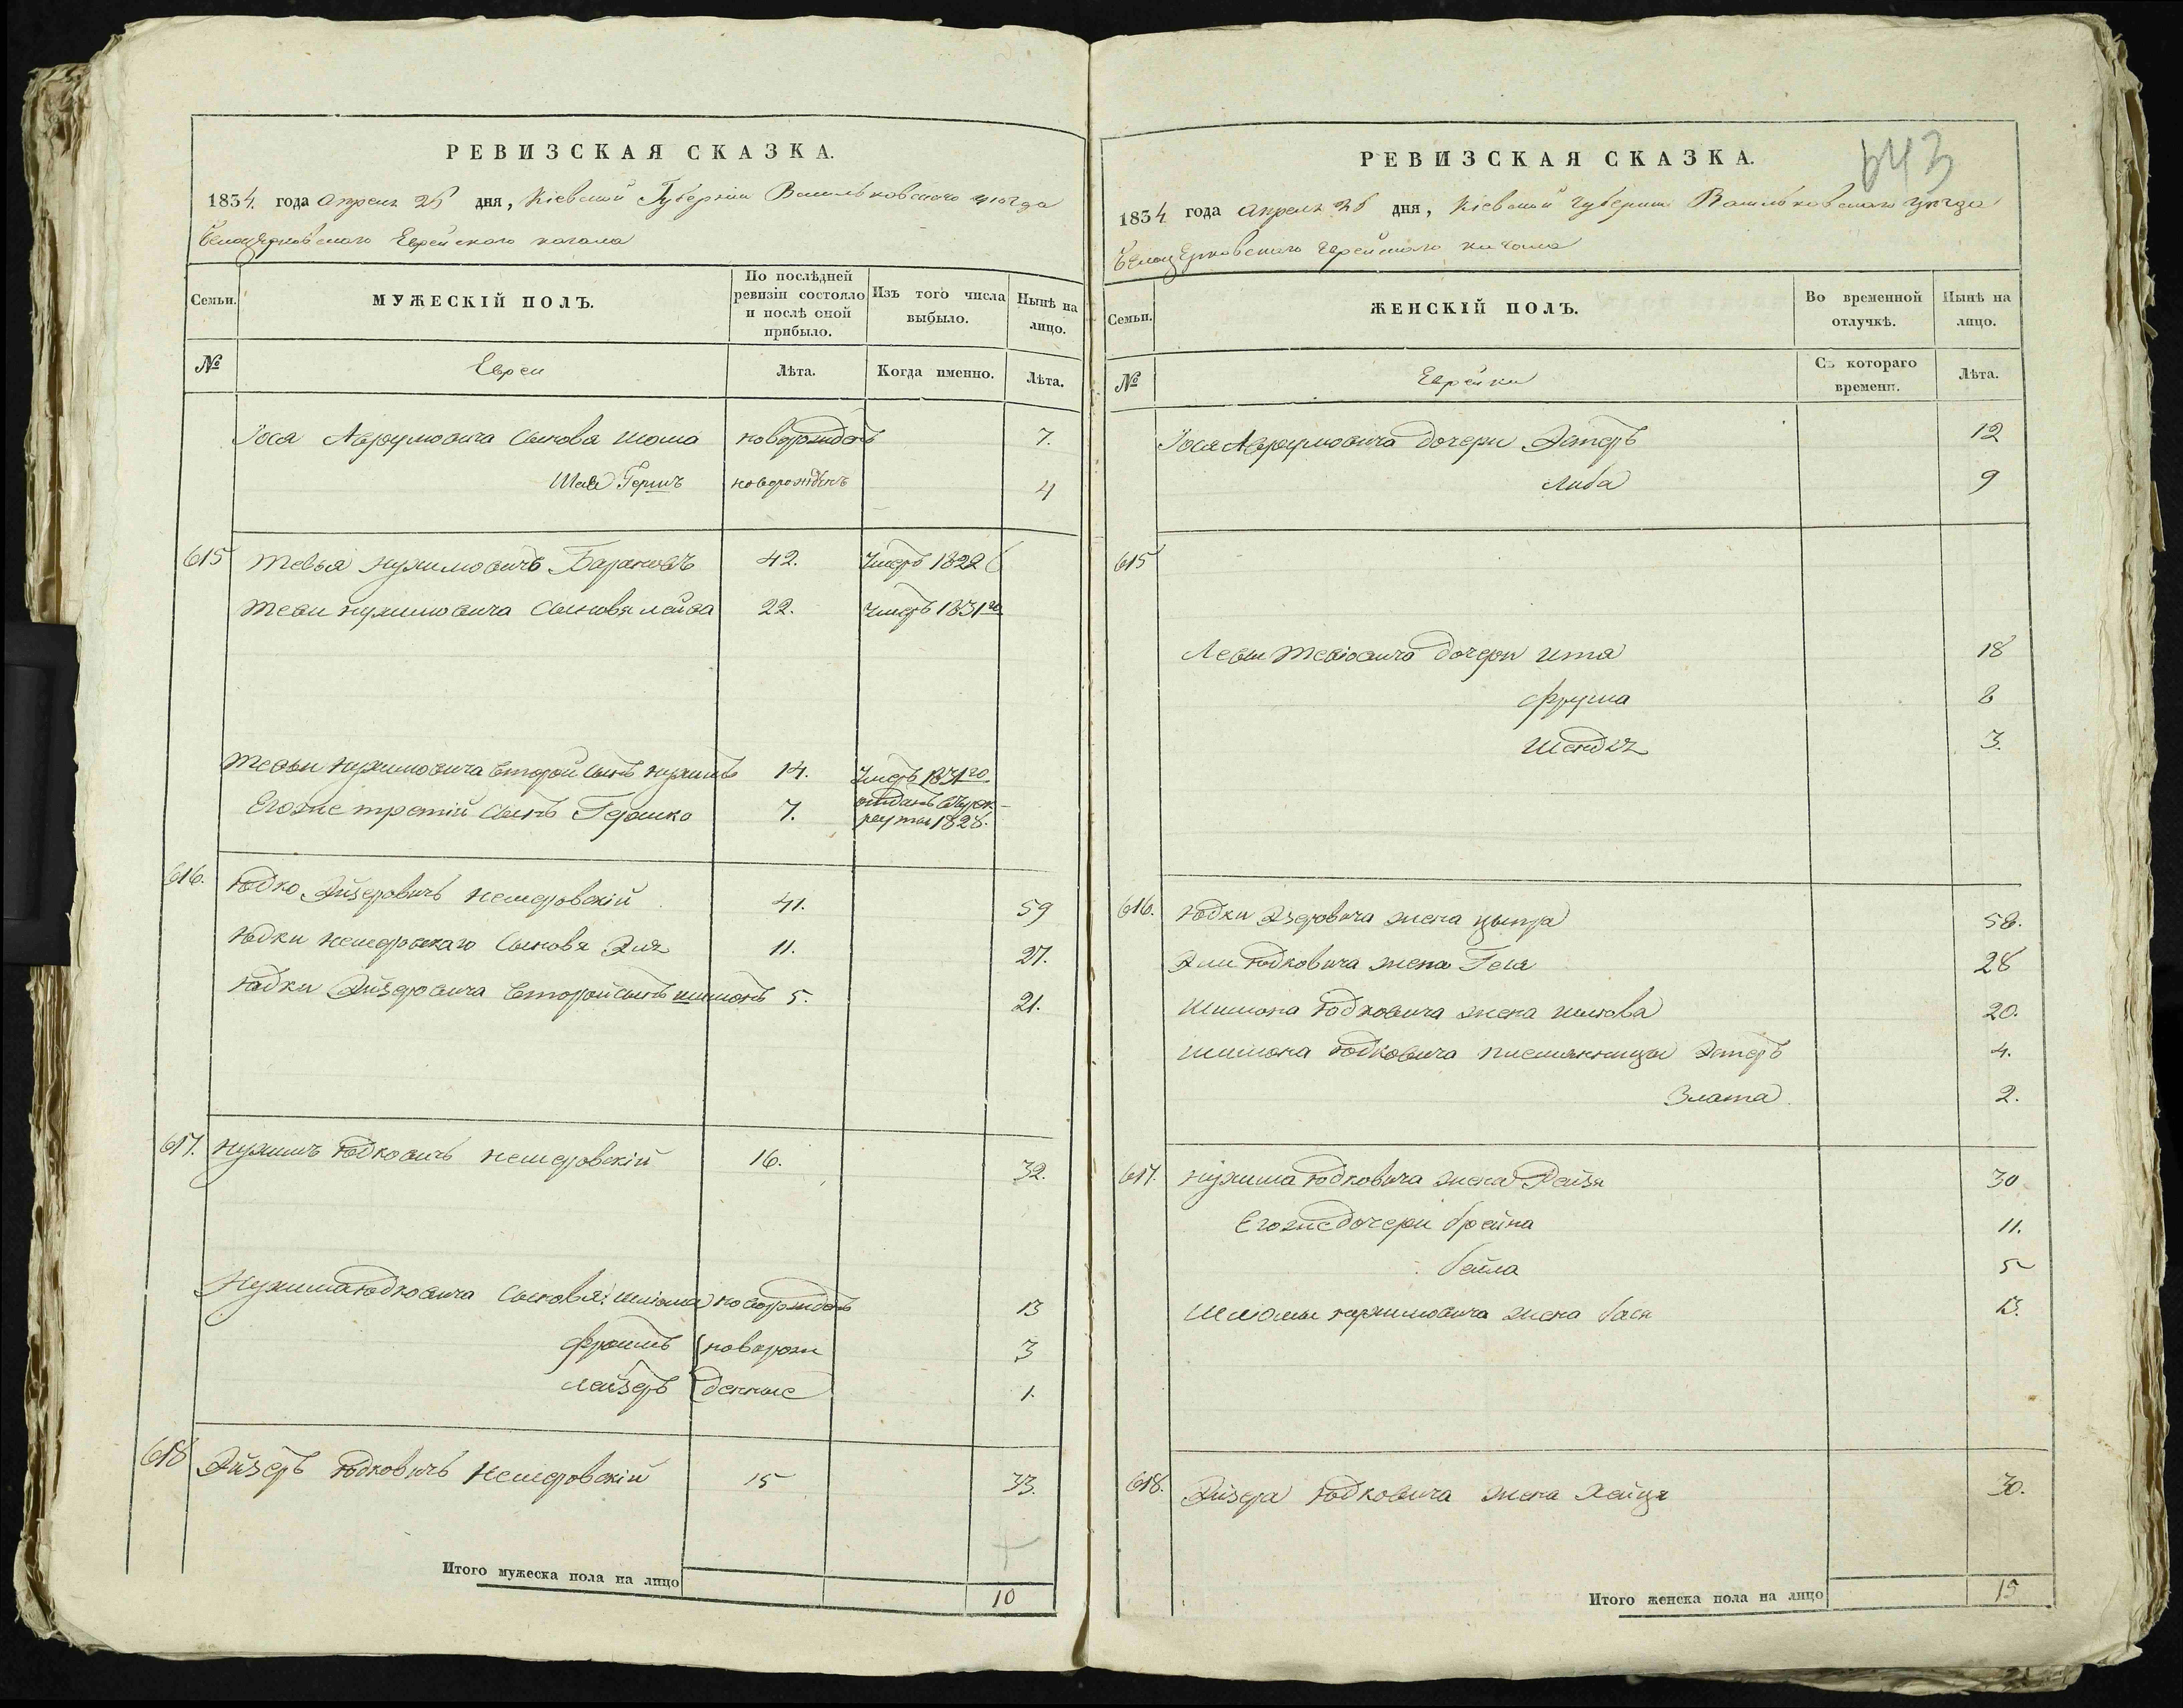 РЕВИЗСКАЯ СКАЗКА.
1834. года Апреля 25 дня, Кіевской Губерніи Васильковского уезда
Белоцерковского Еврейского кагала
Семьи.
МУЖЕСКІЙ ПОЛЪ.
По послѣдней ревизіи состояло и послѣ оной прибыло.
Изъ того числа выбыло.
Нынѣ на лицо.
№
Евреи
Лѣта.
Когда именно.
Лѣта.
Іося Аврумовича сынова Шома новорожденъ 7.
Шая Гершъ новорожденъ 4
615 Тевья Нухимовичъ 42. Умеръ 1822
Теви Нухимовича сыновя Лейва 22. Умеръ 1831го
Тевьи Нухимовича второй сынъ Нухимъ 14. Умеръ 1831го
Его же третій сынъ Гершко 7. отданъ въ рек-
руты 1828.
616. Юдко Эйзеровичъ Немеровскій 41. 59
Юдки Немеровскаго сыновя Эля 11. 27.
Юдки Эйзеровича второй сынъ Шимонъ 5. 21.
617. Нухимъ Юдковичъ Немеровскій 16. 32.
Нухима Юдковича сыновя: Шліома новорожденъ 13
Фроимъ новорож 3
Лейзеръ денные 1.
618 Эйзеръ Юдковичъ Немеровскій 15 33.
Итого мужеска пола на лицо 10
643
РЕВИЗСКАЯ СКАЗКА.
1834 года Апреля 25 дня, Кіевской Губерніи Васильковского уезда
Белоцерковского Еврейского кагала
Семьи.
ЖЕНСКІЙ ПОЛЪ.
Во временной отлучкѣ.
Нынѣ на лицо.
№
Еврейки
Съ котораго времени.
Лѣта.
Іося Аврумовича дочери Эстеръ 12
Либа 9
615
Левы Тевіовича дочери Ита 18
Фрума 8
Шендля 3.
616. Юдки Эзеровича жена Цыпра 58.
Эли Юдковича жена Геля 28
Шимона Юдковича жена 20.
Шимона Юдковича племянницы Эстеръ 4.
Злата. 2.
617. Нухима Юдковича жена Рейзя 30
Его же дочери Брейна 11.
Бейла 5
Шліомы Нухимовича жена Бася 13.
618. Эйзера Юдковича жена Хайця 30.
Итого женска пола на лицо 15